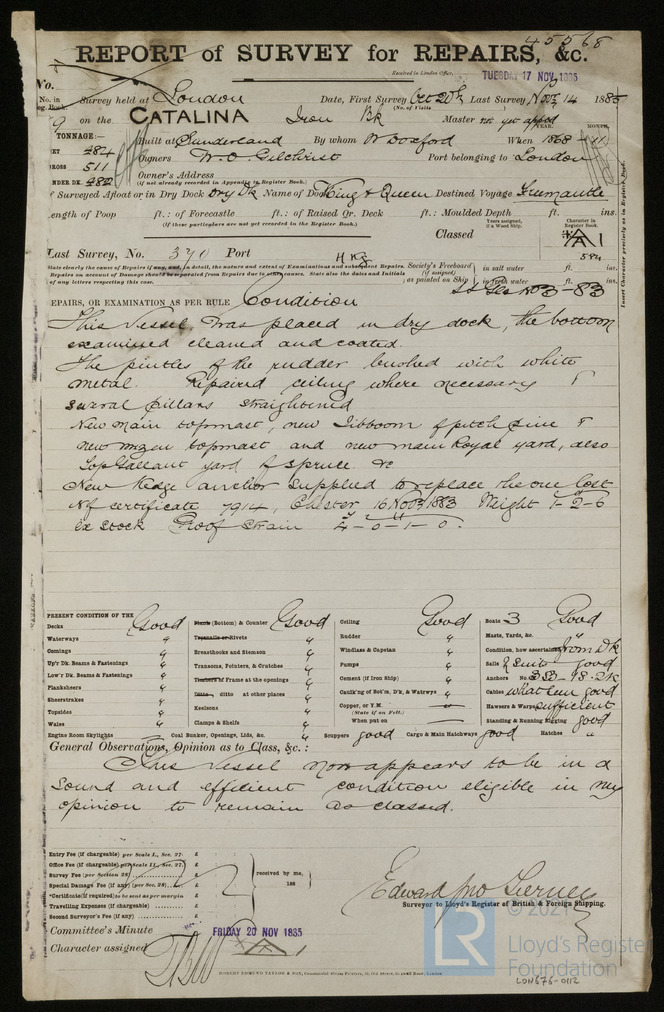 45568
REPORT of SURVEY for REPAIRS, &c.
Received in London Office, TUESDAY 17 NOV 1885
No.
No. in Reg. Book. Survey held at London Date, First Survey Oct 20th Last Survey Nov 14 1885
(No. of Visits
9 on the CATALINA Iron Bk Master not yet apptd
TONNAGE:— Built at Sunderland By whom W Doxford When 1868 - 11
YEAR. MONTH.
NET 484
GROSS 511 Owners W. O. Gilchrist Port belonging to London
UNDER DK. 482 Owner's Address
(if not already recorded in Appendix to Register Book.)
If Surveyed Afloat or in Dry Dock Dry Dk Name of Dock King & Queen Destined Voyage Freemantle
Length of Poop ft.: of Forecastle ft.: of Raised Qr. Deck ft.: Moulded Depth ft. ins.
(If these particulars are not yet recorded in the Register Book.)
Years assigned, if a Wood Ship. Character in Register Book.
Classed A 1
Insert Character precisely as in Register Book.
Last Survey, No. 370 Port H Kg
5 84
State clearly the cause of Repairs if any, and, in detail, the nature and extent of Examinations and subsequent Repairs. Society's Freeboard in salt water ft. ins.
Repairs on account of Damage should be separated from Repairs due to other causes. State also the dates and Initials (if assigned)
of any letters respecting this case. as painted on Ship in fresh water ft. ins.
No 3 - 83
REPAIRS, OR EXAMINATION AS PER RULE Condition
This Vessel was placed in dry dock, the bottom
examined cleaned and coated.
The pintles of the rudder bushed with white
metal Repaired ceiling where necessary &
several pillars straightened
New main topmast, new Jibboom of pitch pine &
new mizen topmast and new main Royal yard, also
Top Gallant yard of spruce &c
New Kedge anchor supplied to replace the one lost
No of certificate 7914, Chester 16 Nov 1883 Weight 1-2-6
ex stock Proof Strain 4-0-1-0.
PRESENT CONDITION OF THE
Decks Good
Waterways "
Comings "
Up'r Dk. Beams & Fastenings "
Low'r Dk. Beams & Fastenings "
Planksheers "
Sheerstrakes "
Topsides "
Wales "
Engine Room Skylights
Plank (Bottom) & Counter Good
Treenails or Rivets "
Breasthooks and Stemson "
Transoms, Pointers, & Crutches "
Timbers of Frame at the openings "
Ditto ditto at other places "
Keelsons "
Clamps & Shelfs "
Coal Bunker, Openings, Lids, &c. "
Ceiling Good
Rudder "
Windlass & Capstan "
Pumps "
Cement (if Iron Ship) "
Caulk'ng of Bot'm, D'k, & Waterwys "
Copper, or Y.M. —
(State if on Felt.)
When put on —
Scuppers good Cargo & Main Hatchways good Hatches "
Boats 3 Good
Masts, Yards, &c. "
Condition, how ascertained from Dk
Sails 2 Suits good
Anchors No. 3B - 1S. 2K
Cables what seen good
Hawsers & Warps sufficient
Standing & Running Rigging good
General Observations, Opinion as to Class, &c.:
This Vessel now appears to be in a
sound and efficient condition eligible in my
opinion to remain as classed.
Entry Fee (if chargeable) per Scale I., Sec. 27. £
Office Fee (if chargeable) per Scale II., Sec. 27. £
Survey Fee (per Section 28) £
Special Damage Fee (if any) (per Sec. 28) £
*Certificate (if required) to be sent as per margin
Travelling Expenses (if chargeable) £
Second Surveyor's Fee (if any) £
received by me,
188
Edward Jno Tierney
Surveyor to Lloyd's Register of British & Foreign Shipping.
Committee's Minute FRIDAY 20 NOV 1885
Character assigned A 1
ROBERT EDMUND TAYLOR & SON,
© 2021
LR Lloyd's Register Foundation
LON676-0112